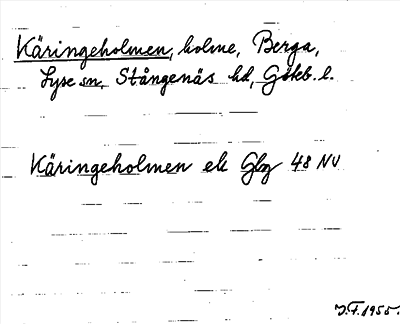 Käringeholmen, holme, Berga,
Lyse sn, Stångenäs hd, Göteb. l.
Käringeholmen ek Gbg 48 NV
J.F. 1955.